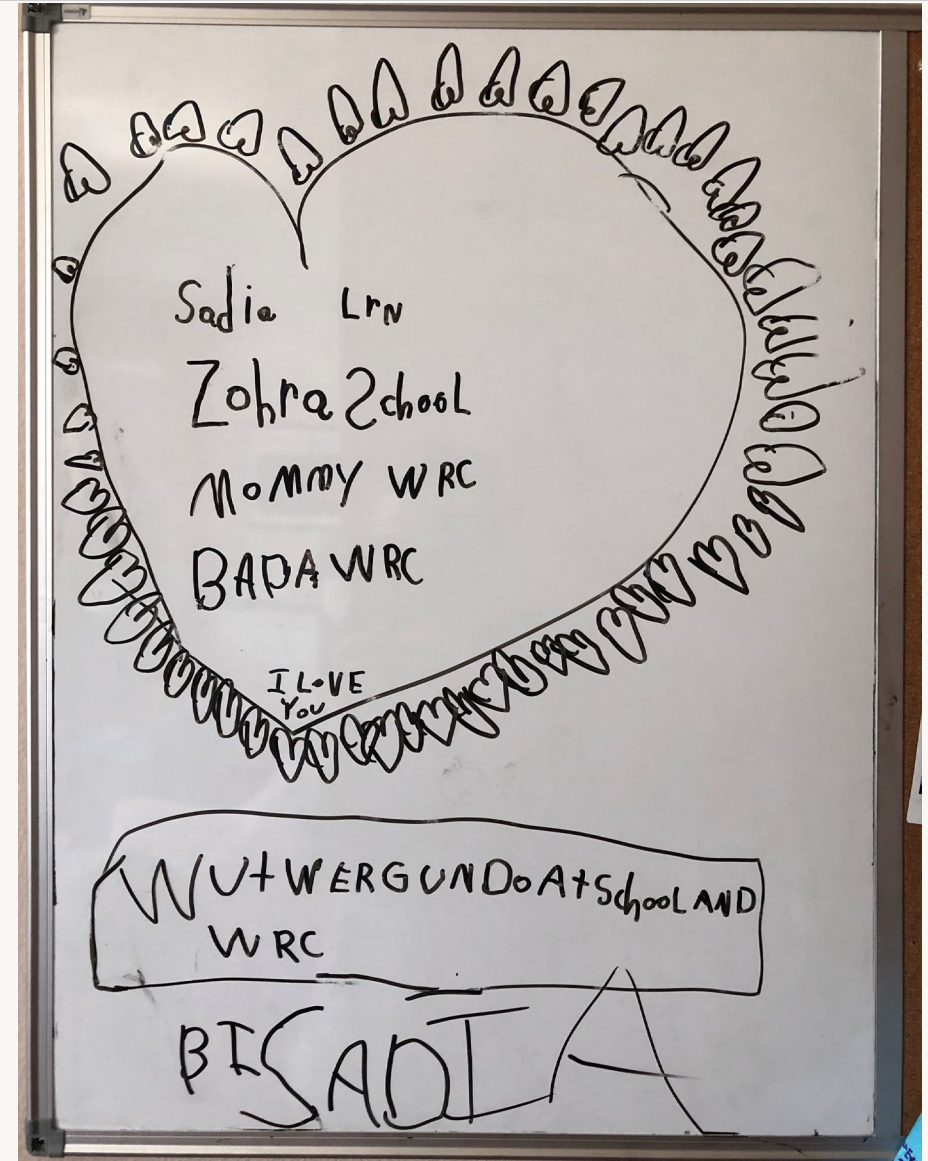 Sadia LrN
Zohra School
MoMMy WRC
BAPA WRC
I LoVE
You
WUt WERGUNDo At School AND
WRC
BI SADIA